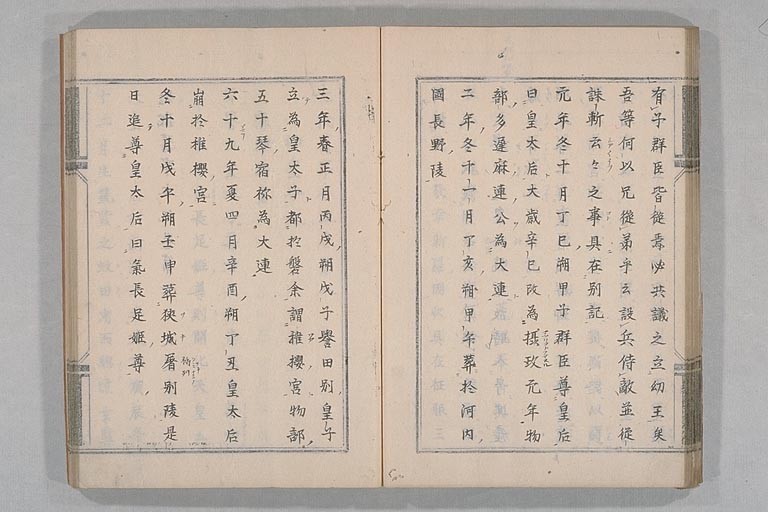 有子群臣皆從焉必共議之立幼王矣
吾等何以兄從弟乎玄設兵侍敵並從
誅斬云々之事具在别記
元年冬十月丁巳朔甲子群臣尊皇后
曰皇太后大歳辛巳改為攝政元年物
部多遲麻連公為大連
二年冬十一月丁亥朔甲午葬於河内
國長野陵
三年春正月丙戌朔戊子譽田别皇子
立為皇太子都於磐余謂稚櫻宮物部
五十琴宿祢為大連
六十九年夏四月辛酉朔丁丑皇太后
崩於稚櫻宮
冬十月戊午朔壬申葬狹城層别陵是
日追尊皇太后曰氣長足姫尊